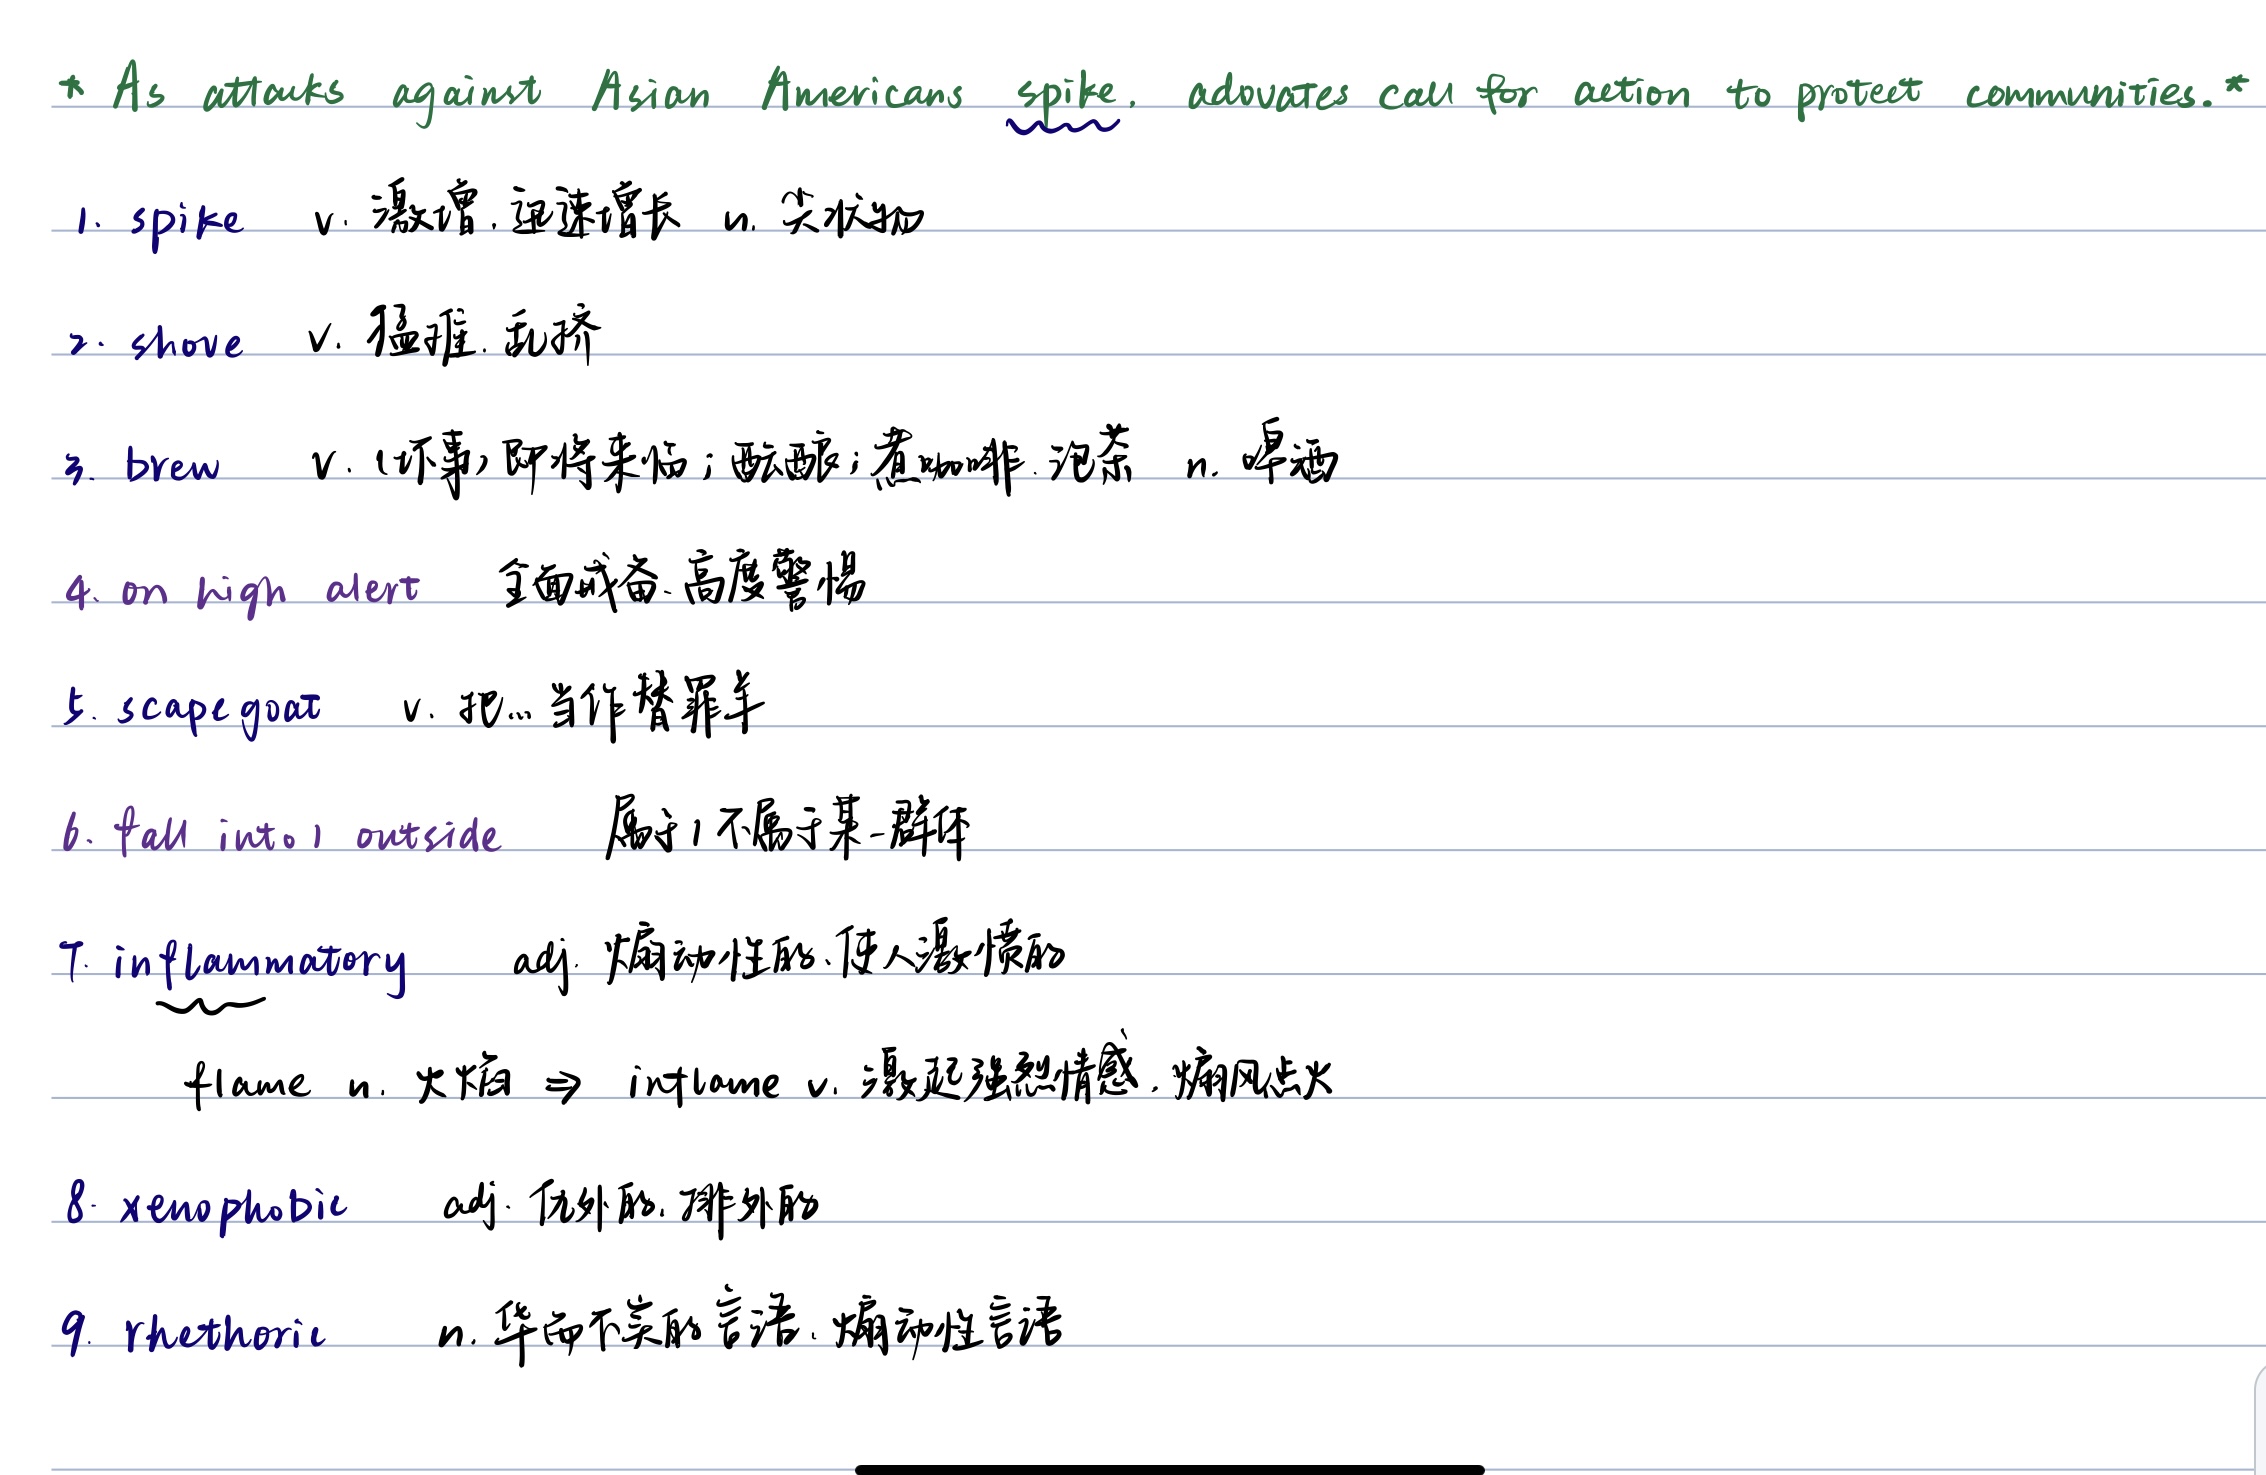 * As attacks against Asian Americans spike, adovates call for action to protect communities. *
1. spike v. 激增、迅速增长 n. 尖状物
2. shove v. 猛推、乱挤
3. brew v. (坏事) 即将来临; 酝酿; 煮咖啡、泡茶 n. 啤酒
4. on high alert 全面戒备、高度警惕
5. scapegoat v. 把...当作替罪羊
6. fall into / outside 属于 / 不属于某一群体
7. inflammatory adj. 煽动性的、使人激愤的
flame n. 火焰 ⇒ inflame v. 激起强烈情感、煽风点火
8. xenophobic adj. 仇外的、排外的
9. rhethoric n. 华而不实的言语、煽动性言语